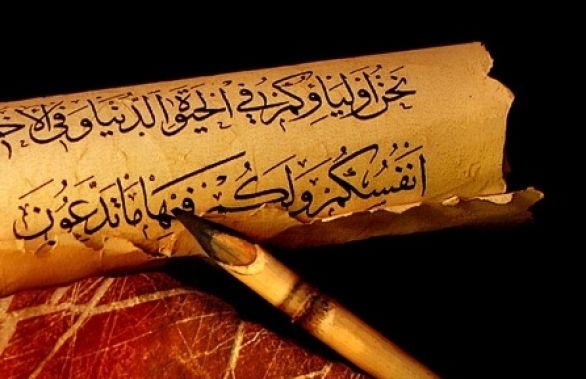 نَحْنُ أَوْلِيَاؤُكُمْ فِي الْحَيٰوةِ الدُّنْيَا وَفِي الْآخِ
أَنفُسُكُمْ وَلَكُمْ فِيهَا مَا تَدَّعُونَ